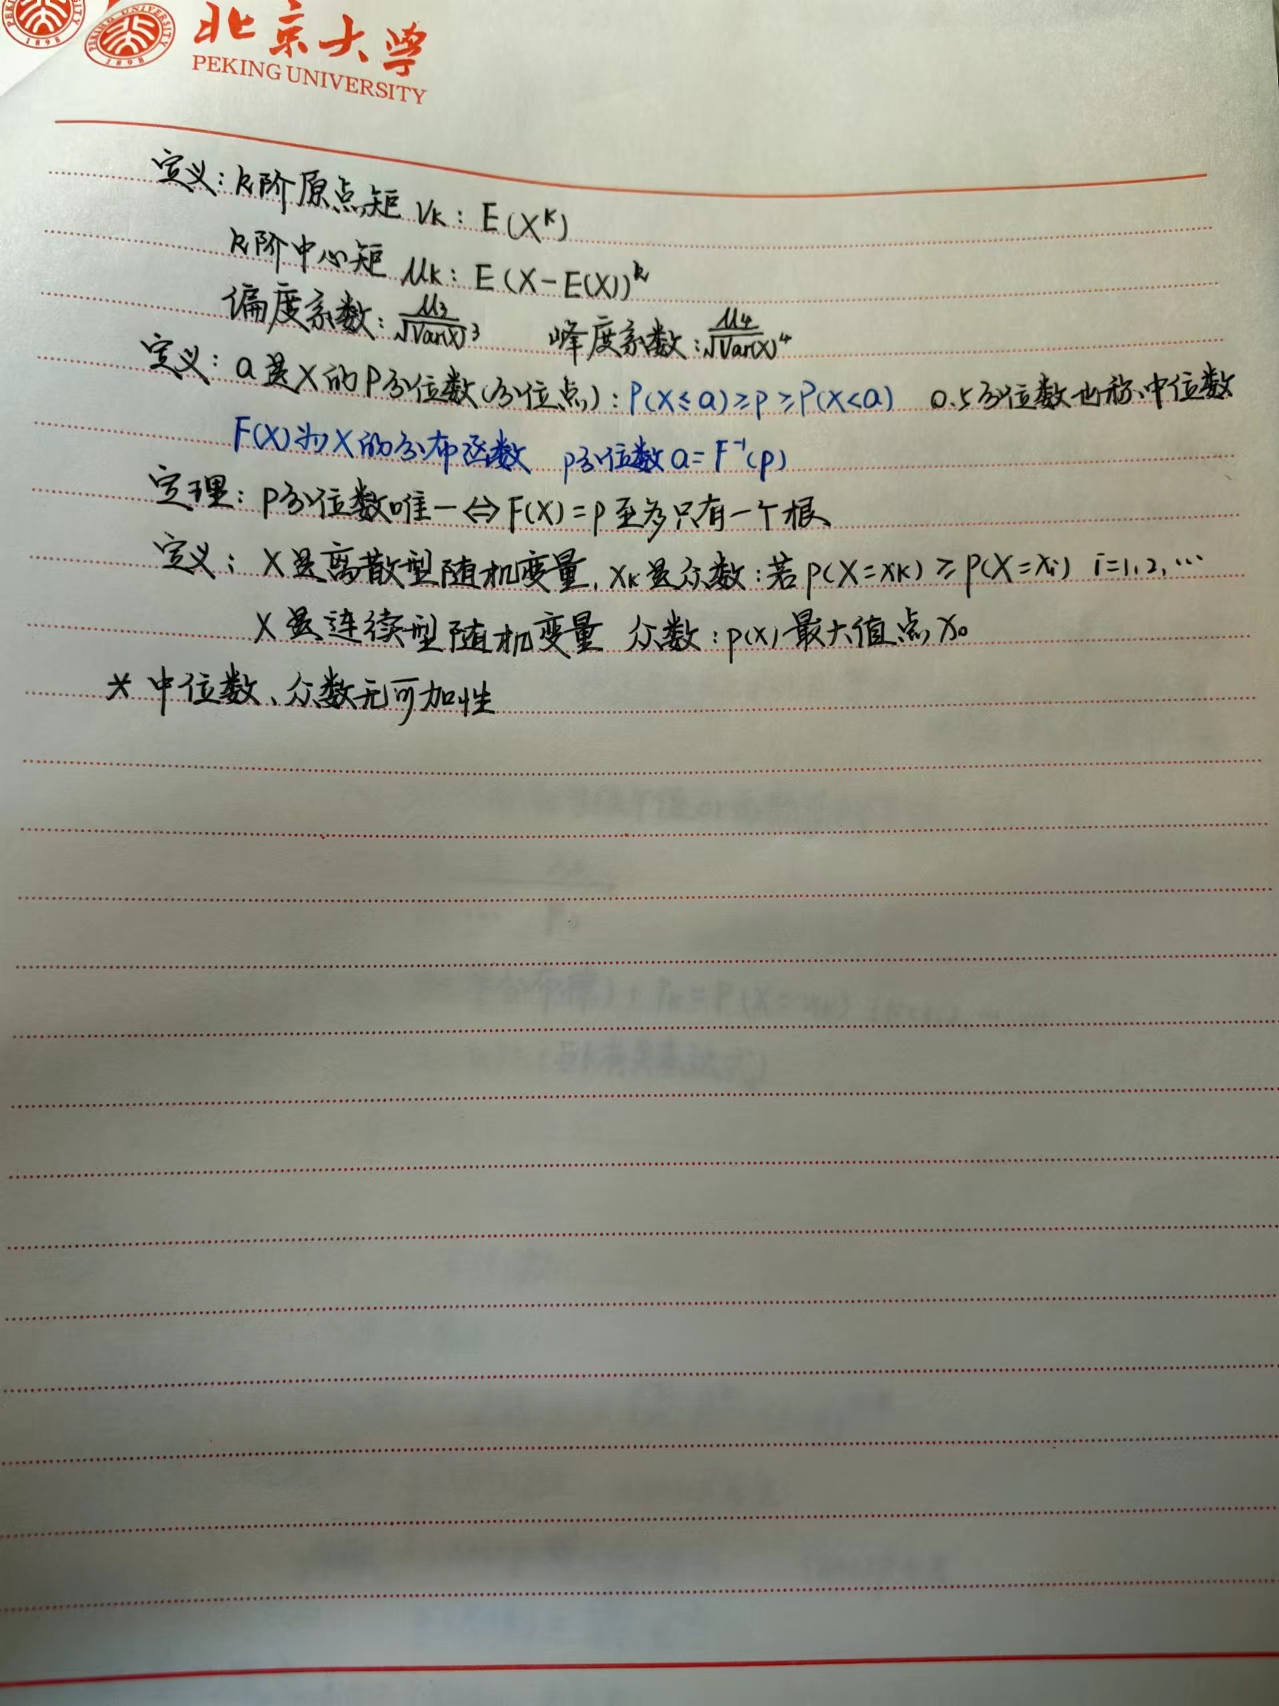 北京大学
PEKING UNIVERSITY
定义：k阶原点矩 νk：E(X^k)
k阶中心矩 μk：E(X-E(X))^k
偏度系数：μ3/√Var(X)^3 峰度系数：μ4/√Var(X)^4
定义：a是X的P分位数(分位点)：P(X≤a)≥p≥P(X<a) 0.5分位数也称中位数
F(X)为X的分布函数 p分位数a=F^-1(p)
定理：p分位数唯一⇔F(X)=p至多只有一个根
定义：X是离散型随机变量，xk是众数：若p(X=xk)≥p(X=xi) i=1,2,…
X是连续型随机变量 众数：p(x)最大值点x0
* 中位数、众数无可加性